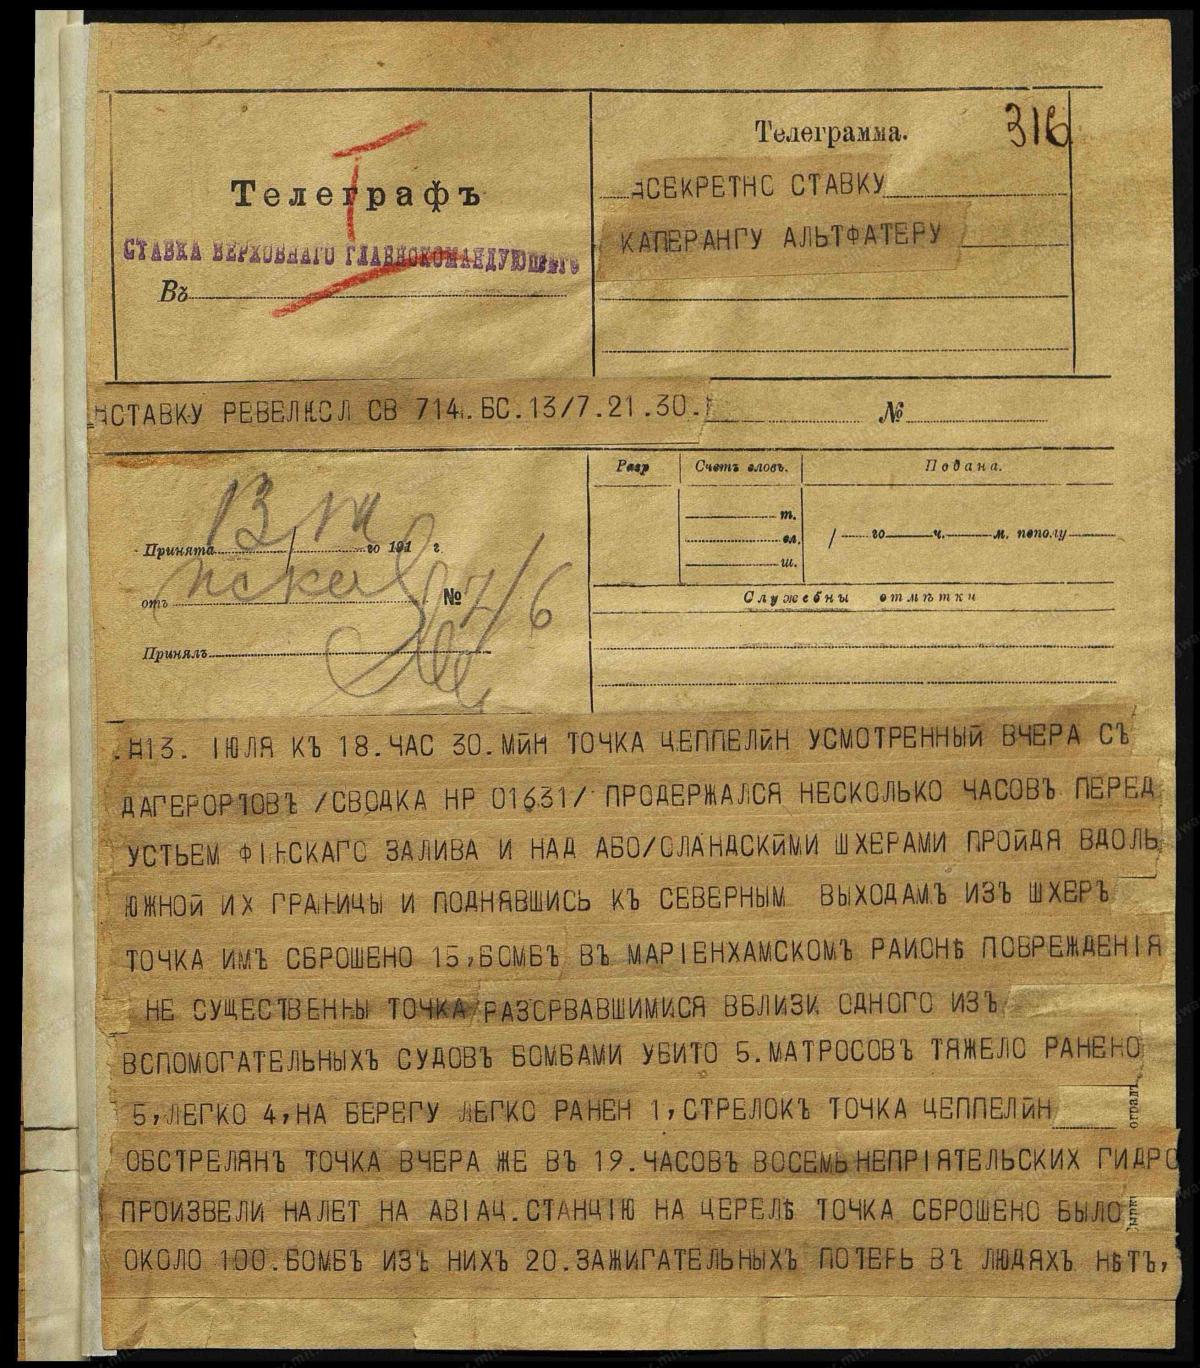 Телеграмма.
316
Телеграфъ
I
СЕКРЕТНО СТАВКУ
КАПЕРАНГУ АЛЬТФАТЕРУ
СТАВКА ВЕРХОВНАГО ГЛАВНОКОМАНДУЮЩАГО
Въ
СТАВКУ РЕВЕЛЯ СЛ СВ 714. БС.13/7.21.30.
№
Разр
Счетъ словъ.
Подана.
13/VII
Принята го 191 г.
т.
сл.
ш.
/ го ч. м. пополу
отъ №7/6
Служебны отмѣтки
Принялъ
13. IЮЛЯ КЪ 18. ЧАС 30. МИН ТОЧКА ЦЕППЕЛИН УСМОТРЕННЫЙ ВЧЕРА СЪ
ДАГЕРОРТОВЪ /СВОДКА НР 01631/ ПРОДЕРЖАЛСЯ НЕСКОЛЬКО ЧАСОВЪ ПЕРЕД
УСТЬЕМ ФIНСКАГО ЗАЛИВА И НАД АБО/ОЛАНДСКИМИ ШХЕРАМИ ПРОЙДЯ ВДОЛЬ
ЮЖНОЙ ИХ ГРАНИЦЫ И ПОДНЯВШИСЬ КЪ СЕВЕРНЫМ ВЫХОДАМЪ ИЗЪ ШХЕРЪ
ТОЧКА ИМЪ СБРОШЕНО 15, БОМБЪ ВЪ МАРIЕНХАМСКОМЪ РАИОНѢ ПОВРЕЖДЕНIЯ
НЕ СУЩЕСТВЕННЫ ТОЧКА РАЗОРВАВШИМИСЯ ВБЛИЗИ ОДНОГО ИЗЪ
ВСПОМОГАТЕЛЬНЫХЪ СУДОВЪ БОМБАМИ УБИТО 5. МАТРОСОВЪ ТЯЖЕЛО РАНЕНО
5, ЛЕГКО 4, НА БЕРЕГУ ЛЕГКО РАНЕН 1, СТРЕЛОКЪ ТОЧКА ЦЕППЕЛИН
ОБСТРЕЛЯНЪ ТОЧКА ВЧЕРА ЖЕ ВЪ 19. ЧАСОВЪ ВОСЕМЬ НЕПРIЯТЕЛЬСКИХ ГИДРО
ПРОИЗВЕЛИ НАЛЕТ НА АВIАЦ. СТАНЦIЮ НА ЦЕРЕЛѢ ТОЧКА СБРОШЕНО БЫЛО
ОКОЛО 100. БОМБЪ ИЗЪ НИХЪ 20. ЗАЖИГАТЕЛЬНЫХЪ ПОТЕРЬ ВЪ ЛЮДЯХЪ НѢТЪ,